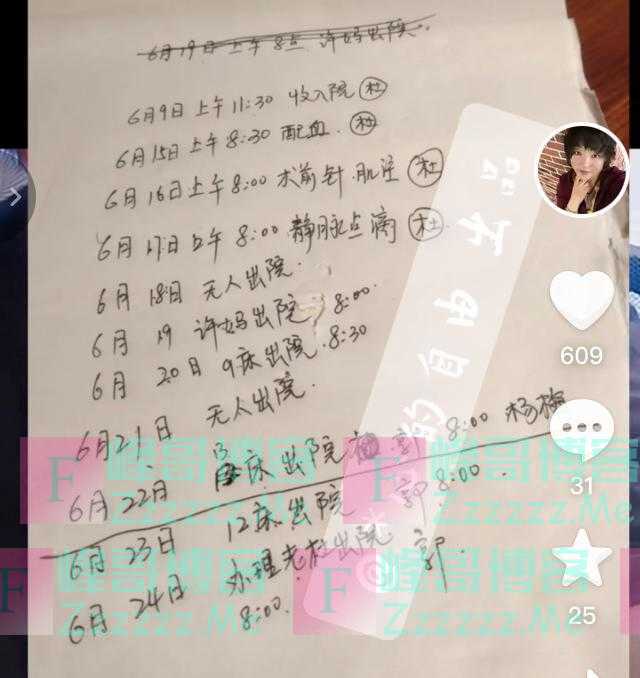 6月19日上午8点 许妈出院.
6月9日上午11:30 收入院 杜
6月15日上午8:30 配血. 杜
6月16日上午8:00 术前针.肌注 杜
6月17日上午8:00 静脉点滴 杜
6月18日 无人出院.
6月19 许妈出院. 8:00.
6月20日 9床出院. 8:30
6月21日 无人出院.
6月22日 床出院 郭 8:00 杨梅
6月23日 12床出院 郭 8:00.
6月24日 办理老杜出院 郭.
8:00.
的自由
609
31
25
F 峰哥博客
Zzzzzz.Me
F 峰哥博客
Zzzzzz.Me
F 峰哥博客
Zzzzzz.Me
F 峰哥博客
Zzzzzz.Me